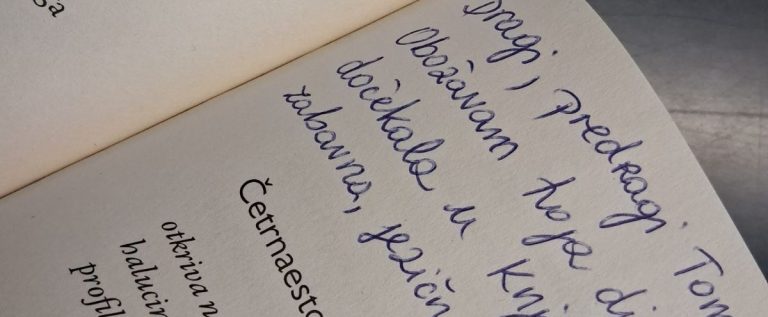 Dragi, predragi Tom
Obožavam koja di
dočekala u Knj
zabavno, jezičn
Četrnaesto
otkriva n
halucin
profil